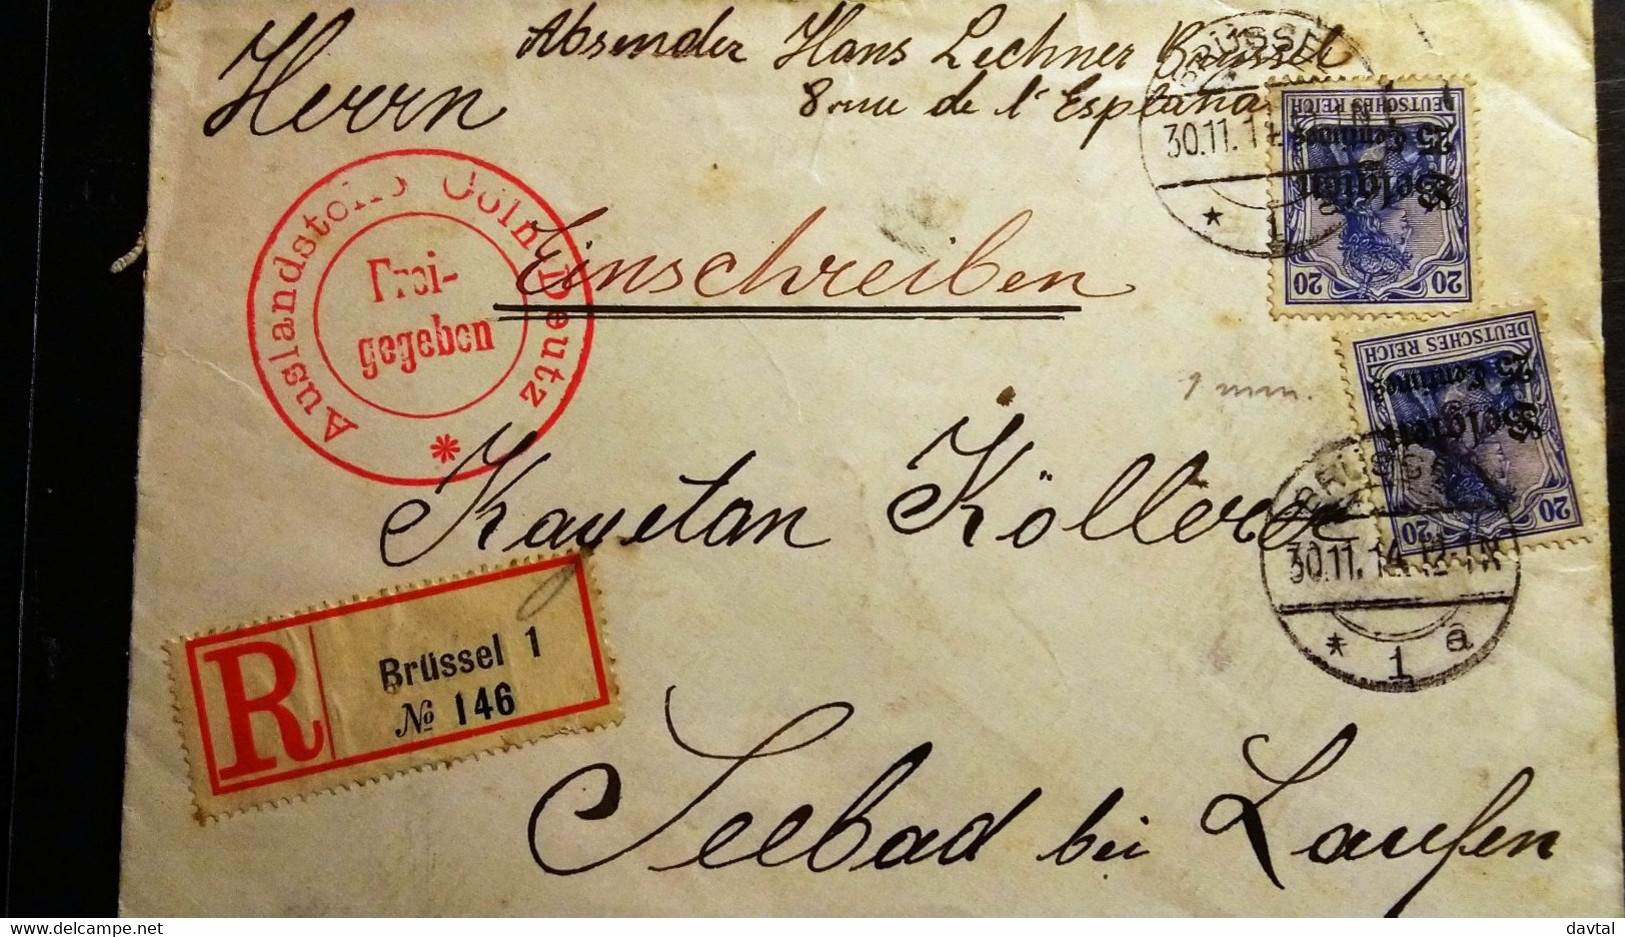 Absender Hans Lechner Brüssel
8 rue de l'Esplana
Herrn
Einschreiben
Auslandstelle Cöln Deutz
Frei-
gegeben
BRÜSSEL
30.11.14
* 1
DEUTSCHES REICH
25 Centimes
Belgien
20 20
1 mm.
DEUTSCHES REICH
25 Centimes
Belgien
20 20
Kajetan Köllerer
BRÜSSEL
30.11.14. 12-1N
* 1 a
R
Brüssel 1
№ 146
Seebad bei Laufen
davtal